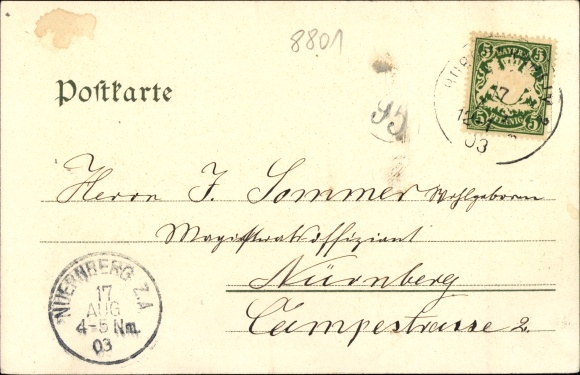 8801
5 BAYERN 5
5 PFENNIG 5
17
03
Postkarte
95
Herrn J. Sommer Wohlgeborn
Magistratsoffiziant
Nürnberg
Campestrasse 2.
NUERNBERG Z.A
17
AUG
4-5 Nm.
03